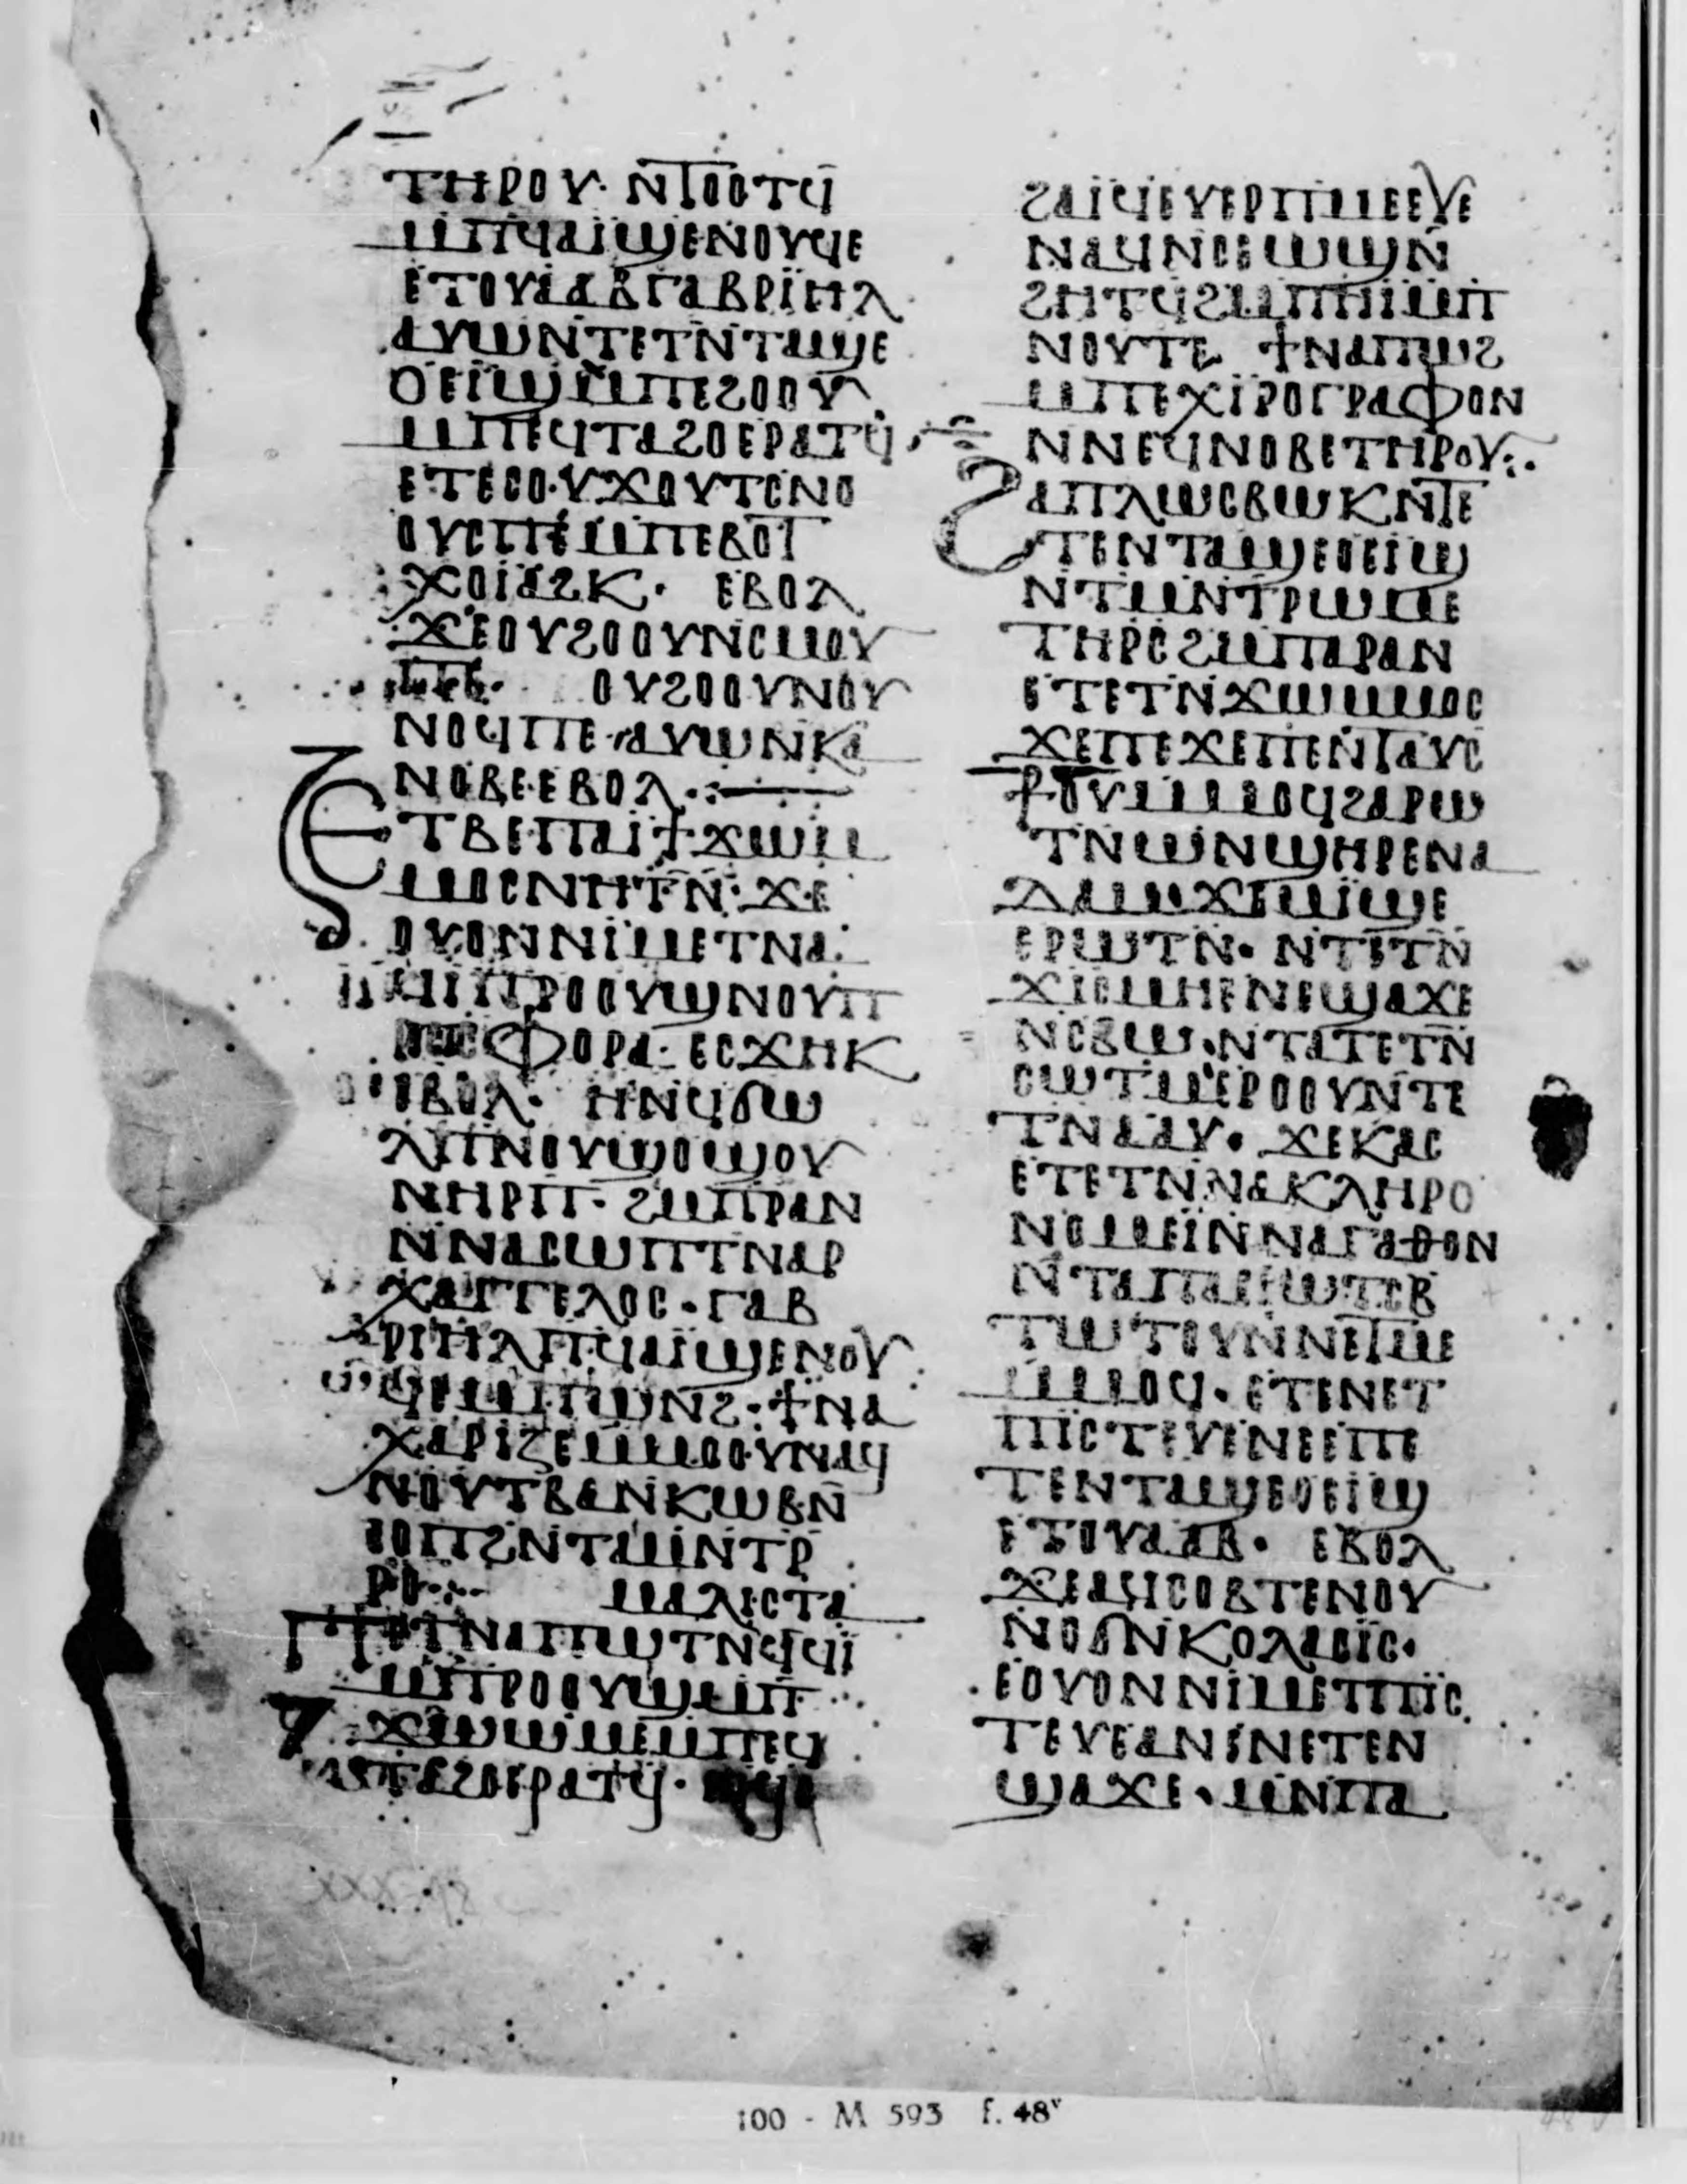 ⲧⲏⲣⲟⲩ· ⲛ̅ⲧⲟⲟⲧϥ̅
ⲙ̅ⲡϥⲁⲓ̈ϣⲉⲛⲟⲩϥⲉ
ⲉⲧⲟⲩⲁⲁⲃⲅⲁⲃⲣⲓ̈ⲏⲗ
ⲁⲩⲱⲛ̅ⲧⲉⲧⲛ̅ⲧⲁϣⲉ
ⲟⲉⲓϣⲙ̅ⲡⲉϩⲟⲟⲩ
ⲙ̅ⲡⲉϥⲧⲁϩⲟⲉⲣⲁⲧϥ̅
ⲉⲧⲉⲥⲟⲩϫⲟⲩⲧⲥⲛⲟ
ⲟⲩⲥⲡⲉⲙ̅ⲡⲉⲃⲟⲧ
ⲭⲟⲓⲁϩⲕ· ⲉⲃⲟⲗ
ϫⲉⲟⲩϩⲟⲟⲩⲛⲥⲙⲟⲩ
ⲡⲉ· ⲟⲩϩⲟⲟⲩⲛⲟⲩ
ⲛⲟϥⲡⲉ·ⲁⲩⲱⲛ̅ⲕⲁ
ⲛⲟⲃⲉⲉⲃⲟⲗ·:—
ⲉⲧⲃⲉⲡⲁⲓ̈ϯϫⲱⲙ
ⲙⲟⲥⲛⲏⲧⲛ̅· ϫⲉ
ⲟⲩⲟⲛⲛⲓⲙⲉⲧⲛⲁ
ϥⲓⲡⲣⲟⲟⲩϣⲛⲟⲩⲡ
ⲣⲟⲥⲫⲟⲣⲁ· ⲉⲥϫⲏⲕ
ⲉⲃⲟⲗ· ⲏⲛϥϭⲱ
ⲗⲡⲛⲟⲩϣⲟϣⲟⲩ
ⲛⲏⲣⲡ· ϩⲙ̅ⲡⲣⲁⲛ
ⲛ̅ⲛⲁⲥⲱⲡⲧⲛⲁⲣ
ⲭⲁⲅⲅⲉⲗⲟⲥ·ⲅⲁⲃ
ⲣⲓⲏⲗⲡϥⲁⲓ̈ϣⲉⲛⲟⲩ
ϥⲉⲙ̅ⲡⲱⲛϩ·ϯⲛⲁ
ⲭⲁⲣⲓⲍⲉⲙⲙⲟⲟⲩⲛⲁϥ
ⲛⲟⲩⲧⲃⲁⲛⲕⲱⲃⲛ̅
ⲥⲟⲡϩⲛ̅ⲧⲁⲙⲛ̅ⲧⲣ̅
ⲣⲟ·:– ⲙⲁⲗⲓⲥⲧⲁ
ⲡⲉⲧⲛⲁⲡⲱⲧⲛϥϥⲓ̈
ⲙ̅ⲡⲣⲟⲟⲩϣⲙ̅ⲡ
ϫⲱⲱⲙⲉⲙ̅ⲡⲉϥ
ⲧⲁϩⲟⲉⲣⲁⲧϥ̅·
ϩⲁⲓ̈ϥⲓⲉⲩⲉⲣⲡⲙⲉⲉⲩⲉ
ⲛⲁϥⲛⲥⲉⲱϣⲛ̅
ϩⲏⲧϥϩⲙ̅ⲡⲏⲓ̈ⲙ̅ⲡ
ⲛⲟⲩⲧⲉ ϯⲛⲁⲡⲱϩ
ⲙ̅ⲡⲉⲭⲓⲣⲟⲅⲣⲁⲫⲟⲛ
ⲛⲛⲉϥⲛⲟⲃⲉⲧⲏⲣⲟⲩ:·
ϩⲁⲡⲗⲱⲥⲃⲱⲕⲛ̅ⲧⲉ
ⲧⲉⲛⲧⲁϣⲉⲟⲉⲓϣ
ⲛ̅ⲧⲙⲛ̅ⲧⲣⲱⲙⲉ
ⲧⲏⲣⲥϩⲙ̅ⲡⲁⲣⲁⲛ
ⲉⲧⲉⲧⲛ̅ϫⲱⲙⲙⲟⲥ
ϫⲉⲡⲉϫⲉⲡⲉⲛⲧⲁⲩⲥ
ⲣ̅ⲟⲩⲙⲙⲟϥϩⲁⲣⲱ
ⲧⲛⲱⲛϣⲏⲣⲉⲛⲁ
ⲇⲁⲙϫⲉⲙⲓϣⲉ
ⲉⲣⲱⲧⲛ̅· ⲛ̅ⲧⲉⲧⲛ̅
ϫⲓⲥⲙⲏⲉⲛⲉϣⲁϫⲉ
ⲛⲥⲃⲱ·ⲛⲧⲁⲧⲉⲧⲛ̅
ⲥⲱⲧⲙ̅ⲉⲣⲟⲟⲩⲛⲧⲉ
ⲧⲛⲁⲁⲩ· ϫⲉⲕⲁⲥ
ⲉⲧⲉⲧⲛ̅ⲛⲁⲕⲗⲏⲣⲟ
ⲛⲟⲙⲉⲓ̈ⲛ̅ⲛⲁⲅⲁⲑⲟⲛ
ⲛ̅ⲧⲁⲡⲁⲉⲓⲱⲧⲥⲃ
ⲧⲱⲧⲟⲩⲛ̅ⲛⲉⲧⲙⲉ
ⲙⲙⲟϥ·ⲉⲧⲉⲛⲉⲧ
ⲡⲓⲥⲧⲉⲩⲉⲛⲉⲉⲡⲉ
ⲧⲉⲛⲧⲁϣⲉⲟⲉⲓϣ
ⲉⲧⲟⲩⲁⲁⲃ· ⲉⲃⲟⲗ
ϫⲉⲁϥⲥⲟⲃⲧⲉⲛⲟⲩ
ⲛⲟϭⲛ̅ⲕⲟⲗⲁⲥⲓⲥ·
ⲉⲟⲩⲟⲛⲛⲓⲙⲉⲧⲡⲓ̈ⲥ
ⲧⲉⲩⲉⲁⲛⲉⲛⲉⲧⲉⲛ
ϣⲁϫⲉ·ⲙⲛ̅ⲡⲁ
100 - M 593 f. 48ᵛ